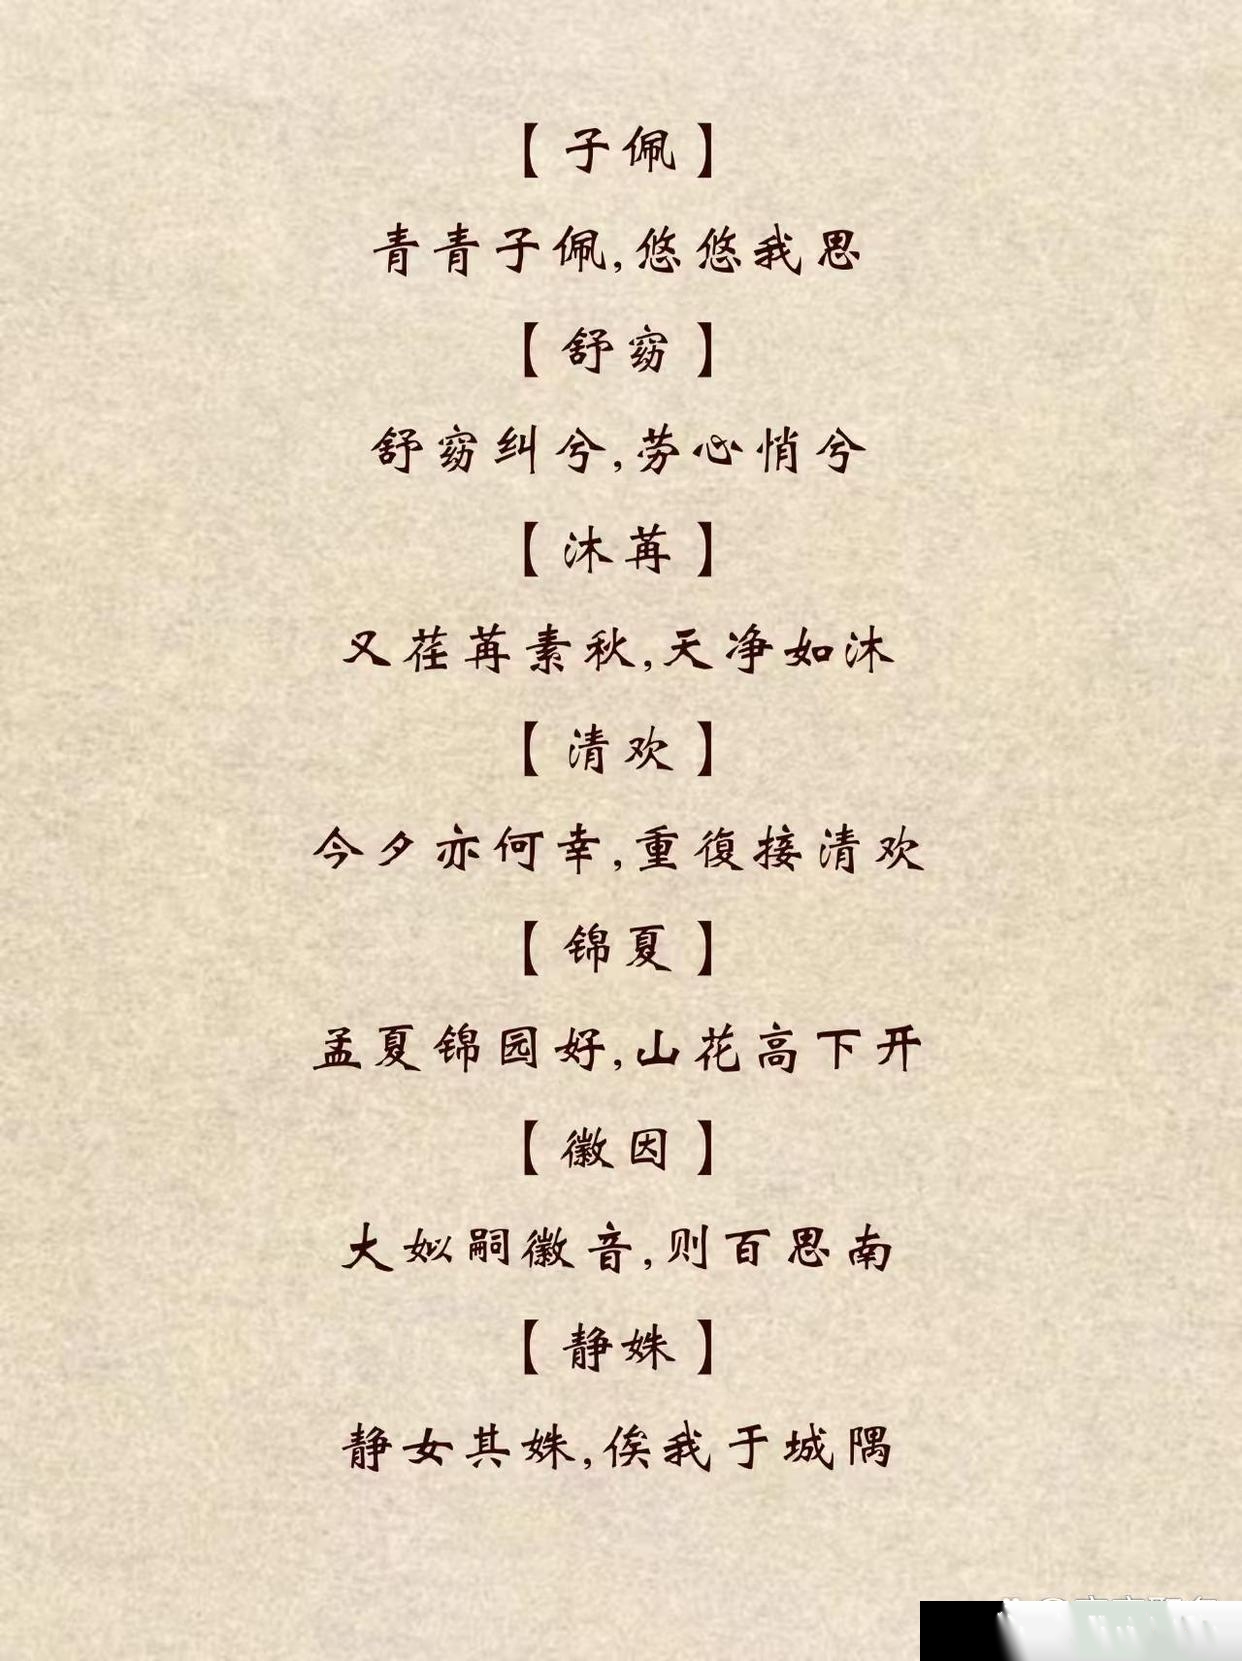 【子佩】
青青子佩,悠悠我思
【舒窈】
舒窈纠兮,劳心悄兮
【沐苒】
又荏苒素秋,天净如沐
【清欢】
今夕亦何幸,重復接清欢
【锦夏】
孟夏锦园好,山花高下开
【徽因】
大姒嗣徽音,则百思南
【静姝】
静女其姝,俟我于城隅